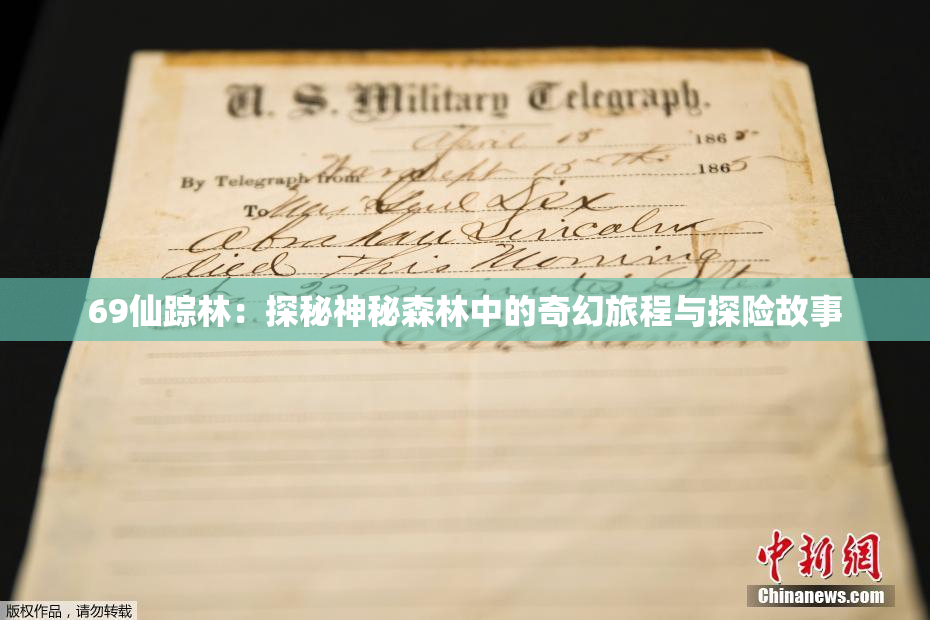 U. S. Military Telegraph.
April 15 1865
By Telegraph from War Dept 15th 1865
To Maj Genl Dix
Abraham Lincoln
died This Morning
at 22 minutes after
69仙踪林：探秘神秘森林中的奇幻旅程与探险故事
E. M. Stanton
中新网
Chinanews.com
版权作品，请勿转载